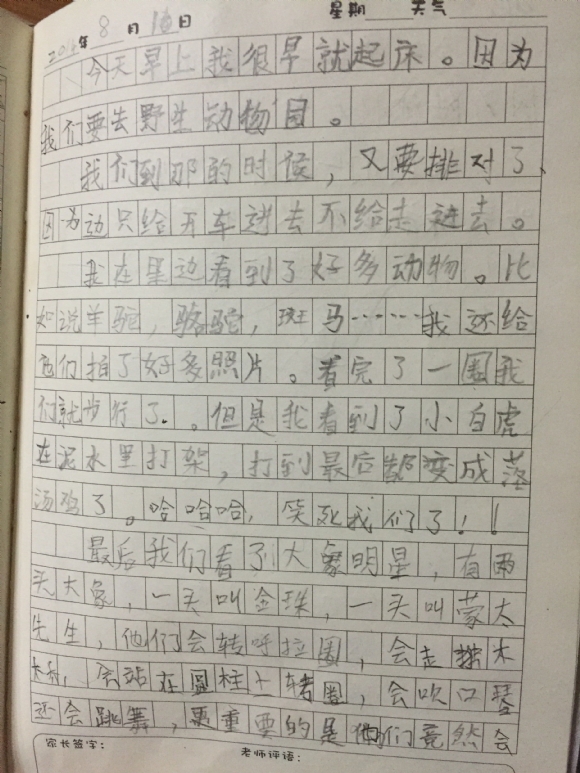 星期 天气
2016年8月16日
今天早上我很早就起床。因为
我们要去野生动物园。
我们到那的时候，又要排对了、
因为动只给开车进去不给走进去。
我在里边看到了好多动物。比
如说羊驼，骆驼，斑马……我还给
它们拍了好多照片。看完了一圈我
们就步行了.。但是我看到了小白虎
在泥水里打架，打到最后都变成落
汤鸡了。哈哈哈，笑死我们了！！
最后我们看了大象明星，有两
头大象，一头叫金珠，一头叫蒙太
先生，他们会转呼拉圈，会走独木
会站在圆柱上转圈，会吹口琴
还会跳舞，更重要的是他们竟然会
家长签字： 老师评语：